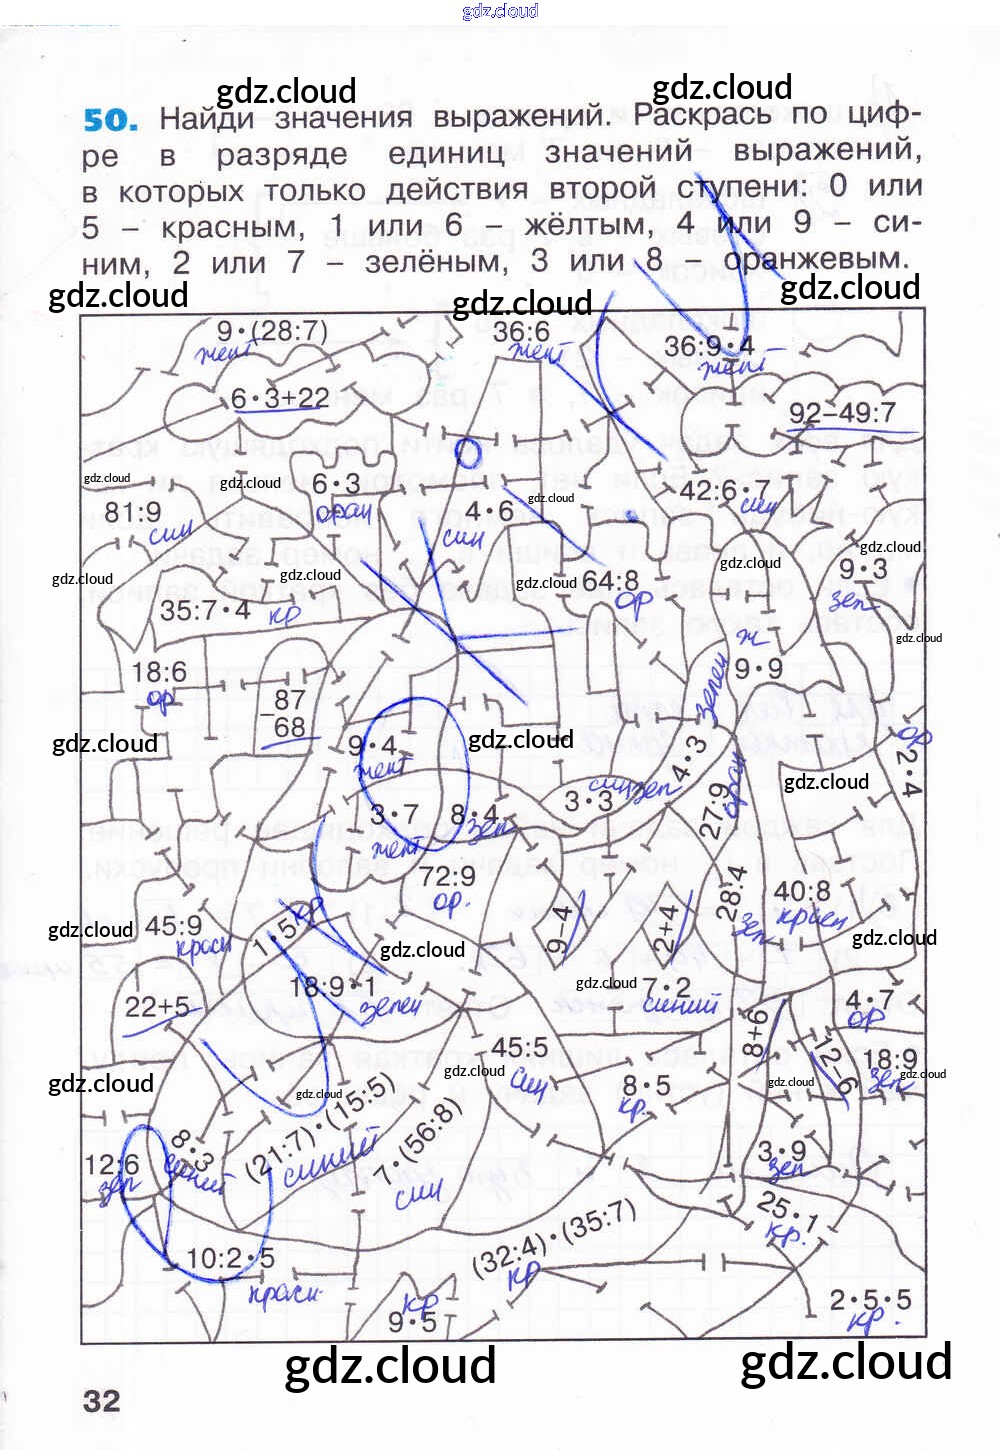 gdz.cloud
gdz.cloud gdz.cloud
50. Найди значения выражений. Раскрась по циф-
ре в разряде единиц значений выражений,
в которых только действия второй ступени: 0 или
5 – красным, 1 или 6 – жёлтым, 4 или 9 – си-
ним, 2 или 7 – зелёным, 3 или 8 – оранжевым.
gdz.cloud gdz.cloud gdz.cloud
9·(28:7) 36:6 36:9·4
жент жент жент
6·3+22 92–49:7
gdz.cloud gdz.cloud gdz.cloud
6·3 42:6·7
81:9 оран 4·6 син
син син
gdz.cloud gdz.cloud gdz.cloud gdz.cloud gdz.cloud
64:8 9·3
35:7·4 кр ор зел
gdz.cloud
ж
18:6 9·9
ор зелен
87
–68
gdz.cloud gdz.cloud ор
9·4 4·3 2·4
жент зел
gdz.cloud
3·3 син 27:9 оран
3·7 8·4 зел
жент
72:9 28:4 40:8
ор. зел красн
45:9 кр
красн 1·5 9–4 2+4
gdz.cloud gdz.cloud gdz.cloud
18:9·1 gdz.cloud 7·2
зелен синий
22+5 4·7
ор
8+6
45:5 12–6 18:9
син зел
gdz.cloud gdz.cloud gdz.cloud gdz.cloud
8·5
кр.
(21:7)·(15:5)
синий
8·3 7·(56:8)
синий син
12:6 3·9
зел зел
25·1
кр.
10:2·5 (32:4)·(35:7)
красн кр
кр
9·5 2·5·5
кр.
gdz.cloud gdz.cloud
32